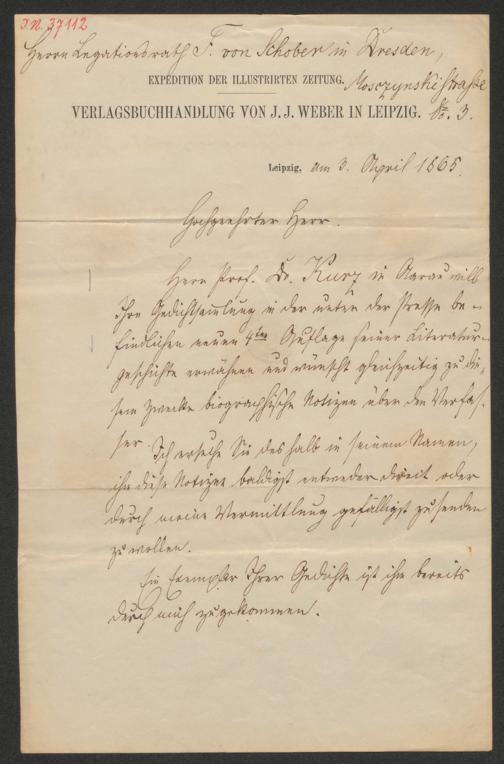 I.N. 37112
Herrn Legationsrath F. von Schober in Dresden,
EXPEDITION DER ILLUSTRIRTEN ZEITUNG. Mosczynskistraße
VERLAGSBUCHHANDLUNG VON J. J. WEBER IN LEIPZIG. No. 3.
Leipzig, am 3. April 1865.
Hochgeehrter Herr.
Herr Prof. Dr. Kurz in Aarau will
Ihre Gedichtsammlung in der unter der Presse be-
findlichen neuen 4ten Auflage seiner Literatur-
geschichte erwähnen und wünscht gleichzeitig zu die-
sem Zwecke biographische Notizen über den Verfas-
ser. Ich ersuche Sie deshalb in seinem Namen,
ihm diese Notizen baldigst entweder direct oder
durch meine Vermittlung gefälligst zusenden
zu wollen.
Ein Exemplar Ihrer Gedichte ist ihm bereits
durch mich zugekommen.